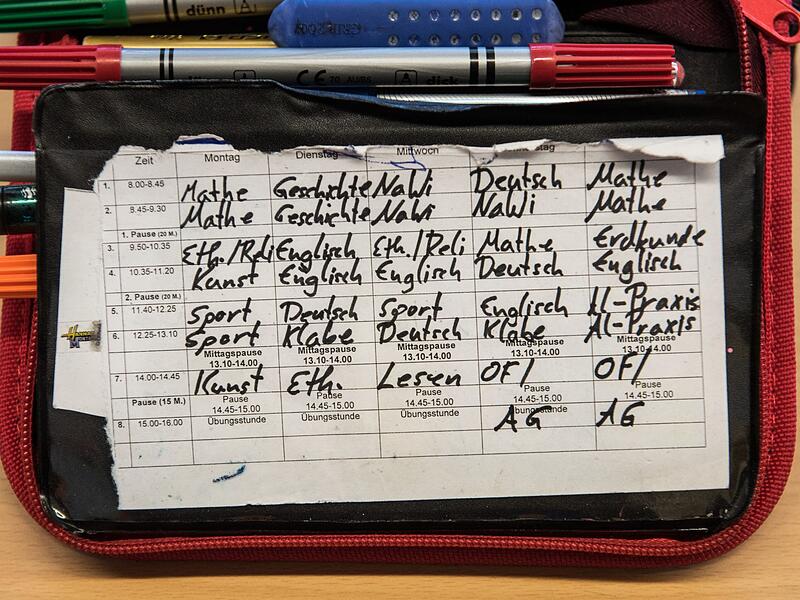 dünn A
CE A dick
Zeit Montag Dienstag Mittwoch stag
1. 8.00-8.45 Mathe Geschichte NaWi Deutsch Mathe
2. 8.45-9.30 Mathe Geschichte NaWi NaWi Mathe
1. Pause (20 M.)
3. 9.50-10.35 Eth./Reli Englisch Eth./Reli Mathe Erdkunde
4. 10.35-11.20 Kunst Englisch Englisch Deutsch Englisch
2. Pause (20 M.)
5. 11.40-12.25 Sport Deutsch Sport Englisch Al-Praxis
6. 12.25-13.10 Sport Klabe Deutsch Klabe Al-Praxis
Mittagspause Mittagspause Mittagspause Mittagspause Mittagspause
13.10-14.00 13.10-14.00 13.10-14.00 13.10-14.00 13.10-14.00
7. 14.00-14.45 Kunst Eth. Lesen OF/ OF/
Pause (15 M.) Pause Pause Pause Pause Pause
14.45-15.00 14.45-15.00 14.45-15.00 14.45-15.00 14.45-15.00
8. 15.00-16.00 Übungsstunde Übungsstunde Übungsstunde AG AG